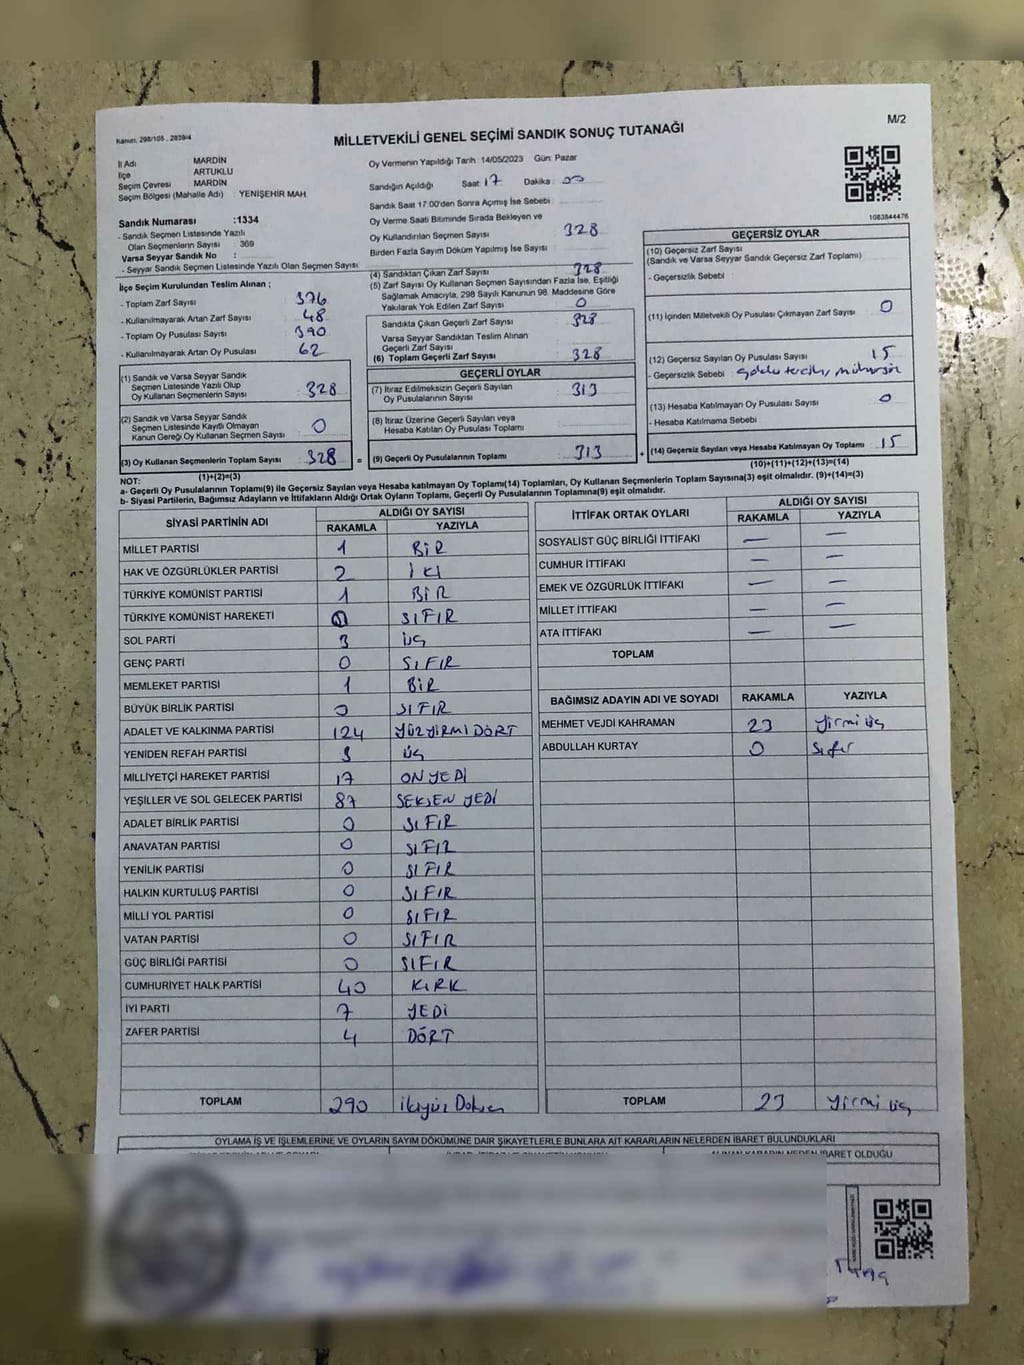 M/2
Kanun: 298/105 , 2839/4
MİLLETVEKİLİ GENEL SEÇİMİ SANDIK SONUÇ TUTANAĞI
İl Adı MARDİN
İlçe ARTUKLU
Seçim Çevresi MARDİN
Seçim Bölgesi (Mahalle Adı) : YENİŞEHİR MAH
Sandık Numarası :1334
- Sandık Seçmen Listesinde Yazılı
Olan Seçmenlerin Sayısı : 369
Varsa Seyyar Sandık No :
- Seyyar Sandık Seçmen Listesinde Yazılı Olan Seçmen Sayısı
İlçe Seçim Kurulundan Teslim Alınan ;
- Toplam Zarf Sayısı 376
- Kullanılmayarak Artan Zarf Sayısı 48
- Toplam Oy Pusulası Sayısı 390
- Kullanılmayarak Artan Oy Pusulası 62
(1) Sandık ve Varsa Seyyar Sandık
Seçmen Listesinde Yazılı Olup
Oy Kullanan Seçmenlerin Sayısı 328
(2) Sandık ve Varsa Seyyar Sandık
Seçmen Listesinde Kayıtlı Olmayan
Kanun Gereği Oy Kullanan Seçmen Sayısı 0
(3) Oy Kullanan Seçmenlerin Toplam Sayısı 328 =
(1)+(2)=(3)
Oy Vermenin Yapıldığı Tarih :14/05/2023 Gün: Pazar
Sandığın Açıldığı Saat 17 Dakika : 00
Sandık Saat 17:00'den Sonra Açımış İse Sebebi
Oy Verme Saati Bitiminde Sırada Bekleyen ve
Oy Kullandırılan Seçmen Sayısı 328
Birden Fazla Sayım Döküm Yapılmış İse Sayısı
(4) Sandıktan Çıkan Zarf Sayısı 328
(5) Zarf Sayısı Oy Kullanan Seçmen Sayısından Fazla İse, Eşitliği
Sağlamak Amacıyla, 298 Sayılı Kanunun 98. Maddesine Göre
Yakılarak Yok Edilen Zarf Sayısı 0
Sandıkta Çıkan Geçerli Zarf Sayısı 328
Varsa Seyyar Sandıktan Teslim Alınan
Geçerli Zarf Sayısı
(6) Toplam Geçerli Zarf Sayısı 328
GEÇERLİ OYLAR
(7) İtiraz Edilmeksizin Geçerli Sayılan
Oy Pusulalarının Sayısı 313
(8) İtiraz Üzerine Geçerli Sayılan veya
Hesaba Katılan Oy Pusulası Toplamı
(9) Geçerli Oy Pusulalarının Toplamı 313 +
1083844476
GEÇERSİZ OYLAR
(10) Geçersiz Zarf Sayısı
(Sandık ve Varsa Seyyar Sandık Geçersiz Zarf Toplamı)
- Geçersizlik Sebebi :
(11) İçinden Milletvekili Oy Pusulası Çıkmayan Zarf Sayısı 0
(12) Geçersiz Sayılan Oy Pusulası Sayısı 15
- Geçersizlik Sebebi
(13) Hesaba Katılmayan Oy Pusulası Sayısı 0
- Hesaba Katılmama Sebebi
(14) Geçersiz Sayılan veya Hesaba Katılmayan Oy Toplamı 15
(10)+(11)+(12)+(13)=(14)
NOT:
a- Geçerli Oy Pusulalarının Toplamı(9) ile Geçersiz Sayılan veya Hesaba katılmayan Oy Toplamı(14) Toplamları, Oy Kullanan Seçmenlerin Toplam Sayısına(3) eşit olmalıdır. (9)+(14)=(3)
b- Siyasi Partilerin, Bağımsız Adayların ve İttifakların Aldığı Ortak Oyların Toplamı, Geçerli Oy Pusulalarının Toplamına(9) eşit olmalıdır.
SİYASİ PARTİNİN ADI ALDIĞI OY SAYISI
RAKAMLA YAZIYLA
MİLLET PARTİSİ 1 BİR
HAK VE ÖZGÜRLÜKLER PARTİSİ 2 İKİ
TÜRKİYE KOMÜNİST PARTİSİ 1 BİR
TÜRKİYE KOMÜNİST HAREKETİ 0 SIFIR
SOL PARTİ 3 ÜÇ
GENÇ PARTİ 0 SIFIR
MEMLEKET PARTİSİ 1 BİR
BÜYÜK BİRLİK PARTİSİ 0 SIFIR
ADALET VE KALKINMA PARTİSİ 124 YÜZYİRMİDÖRT
YENİDEN REFAH PARTİSİ 3 ÜÇ
MİLLİYETÇİ HAREKET PARTİSİ 17 ONYEDİ
YEŞİLLER VE SOL GELECEK PARTİSİ 87 SEKSEN YEDİ
ADALET BİRLİK PARTİSİ 0 SIFIR
ANAVATAN PARTİSİ 0 SIFIR
YENİLİK PARTİSİ 0 SIFIR
HALKIN KURTULUŞ PARTİSİ 0 SIFIR
MİLLİ YOL PARTİSİ 0 SIFIR
VATAN PARTİSİ 0 SIFIR
GÜÇ BİRLİĞİ PARTİSİ 0 SIFIR
CUMHURİYET HALK PARTİSİ 40 KIRK
İYİ PARTİ 7 YEDİ
ZAFER PARTİSİ 4 DÖRT
TOPLAM 290 ikiyüz Doksan
İTTİFAK ORTAK OYLARI ALDIĞI OY SAYISI
RAKAMLA YAZIYLA
SOSYALİST GÜÇ BİRLİĞİ İTTİFAKI — —
CUMHUR İTTİFAKI — —
EMEK VE ÖZGÜRLÜK İTTİFAKI — —
MİLLET İTTİFAKI — —
ATA İTTİFAKI — —
TOPLAM
BAĞIMSIZ ADAYIN ADI VE SOYADI RAKAMLA YAZIYLA
MEHMET VEJDİ KAHRAMAN 23 Yirmi üç
ABDULLAH KURTAY 0 Sıfır
TOPLAM 23 Yirmi üç
OYLAMA İŞ VE İŞLEMLERİNE VE OYLARIN SAYIM DÖKÜMÜNE DAİR ŞİKAYETLERLE BUNLARA AİT KARARLARIN NELERDEN İBARET BULUNDUKLARI
ALINAN KARARIN NEDEN İBARET OLDUĞU